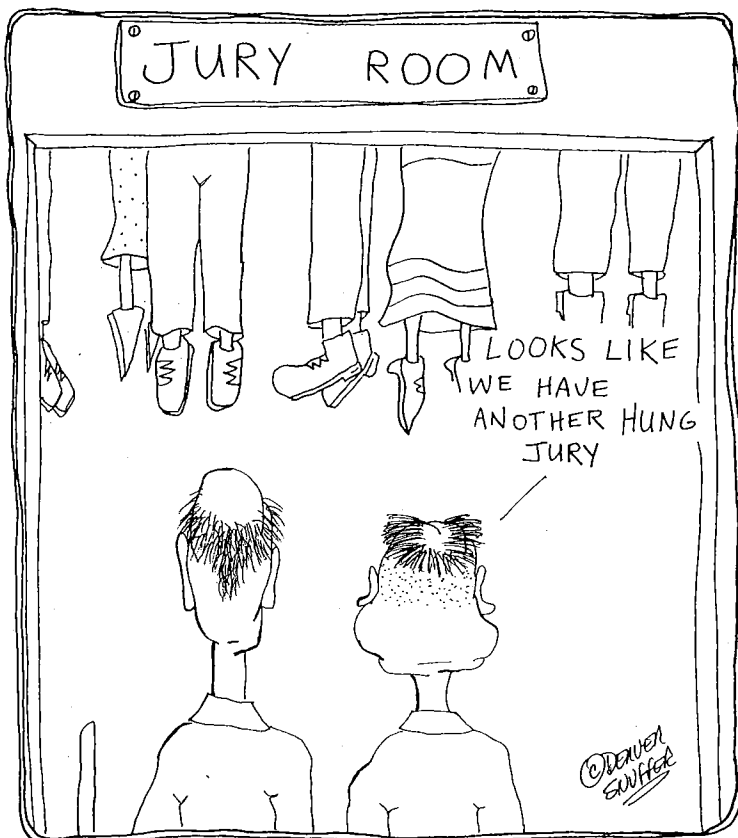 JURY ROOM
LOOKS LIKE
WE HAVE
ANOTHER HUNG
JURY
© DENVER
SNUFFER